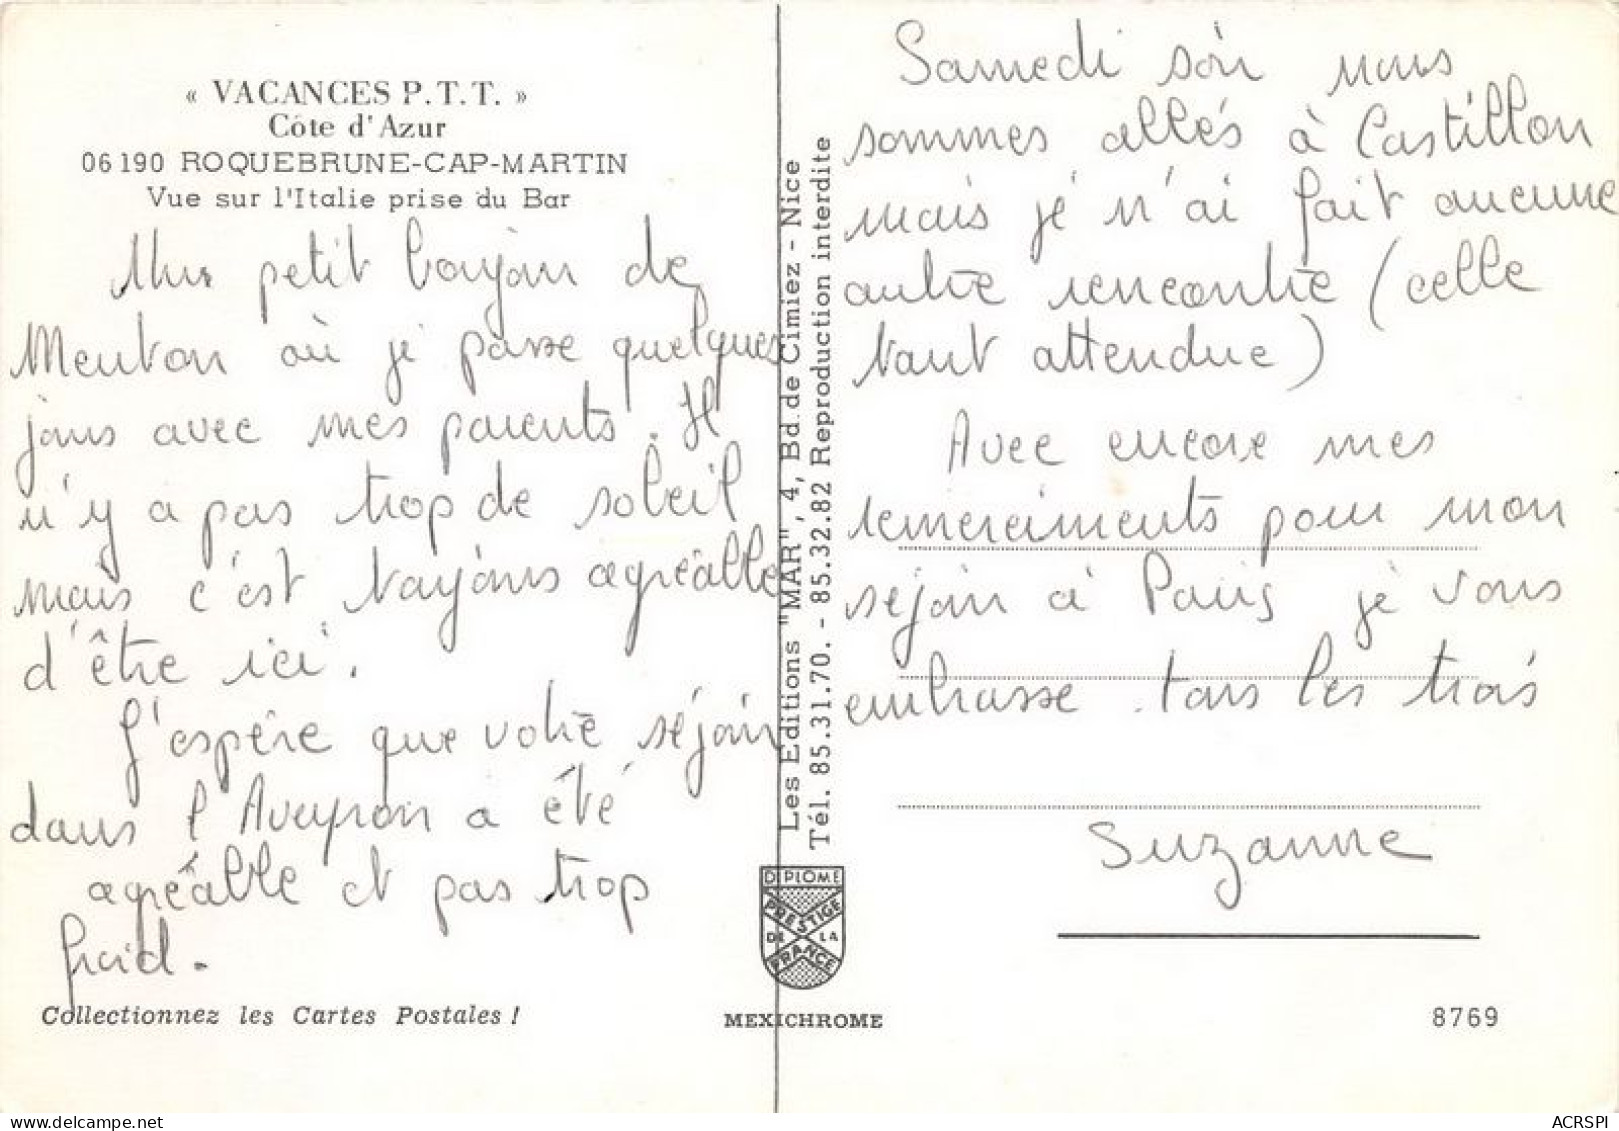 « VACANCES P.T.T. »
Côte d'Azur
06190 ROQUEBRUNE-CAP-MARTIN
Vue sur l'Italie prise du Bar
Un petit bonjour de
Menton où je passe quelques
jours avec mes parents. Il
n'y a pas trop de soleil
mais c'est toujours agréable
d'être ici.
J'espère que votre séjour
dans l'Aveyron a été
agréable et pas trop
froid.
Collectionnez les Cartes Postales !
Les Editions "MAR", 4, Bd. de Cimiez - Nice
Tél. 85.31.70. - 85.32.82 Reproduction interdite
DIPLOME
PRESTIGE
DE LA
FRANCE
MEXICHROME
Samedi soir nous
sommes allés à Castillon
mais je n'ai fait aucune
autre rencontre (celle
tant attendue)
Avec encore mes
remerciments pour mon
séjour à Paris je vous
embrasse tous les trois
Suzanne
8769
ACRSPI